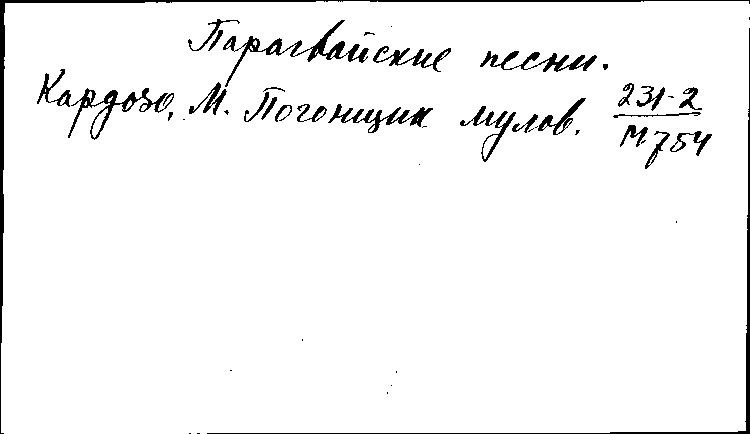 Парагвайские песни.
Кардозо, М. Погонщик мулов. 231-2
М754